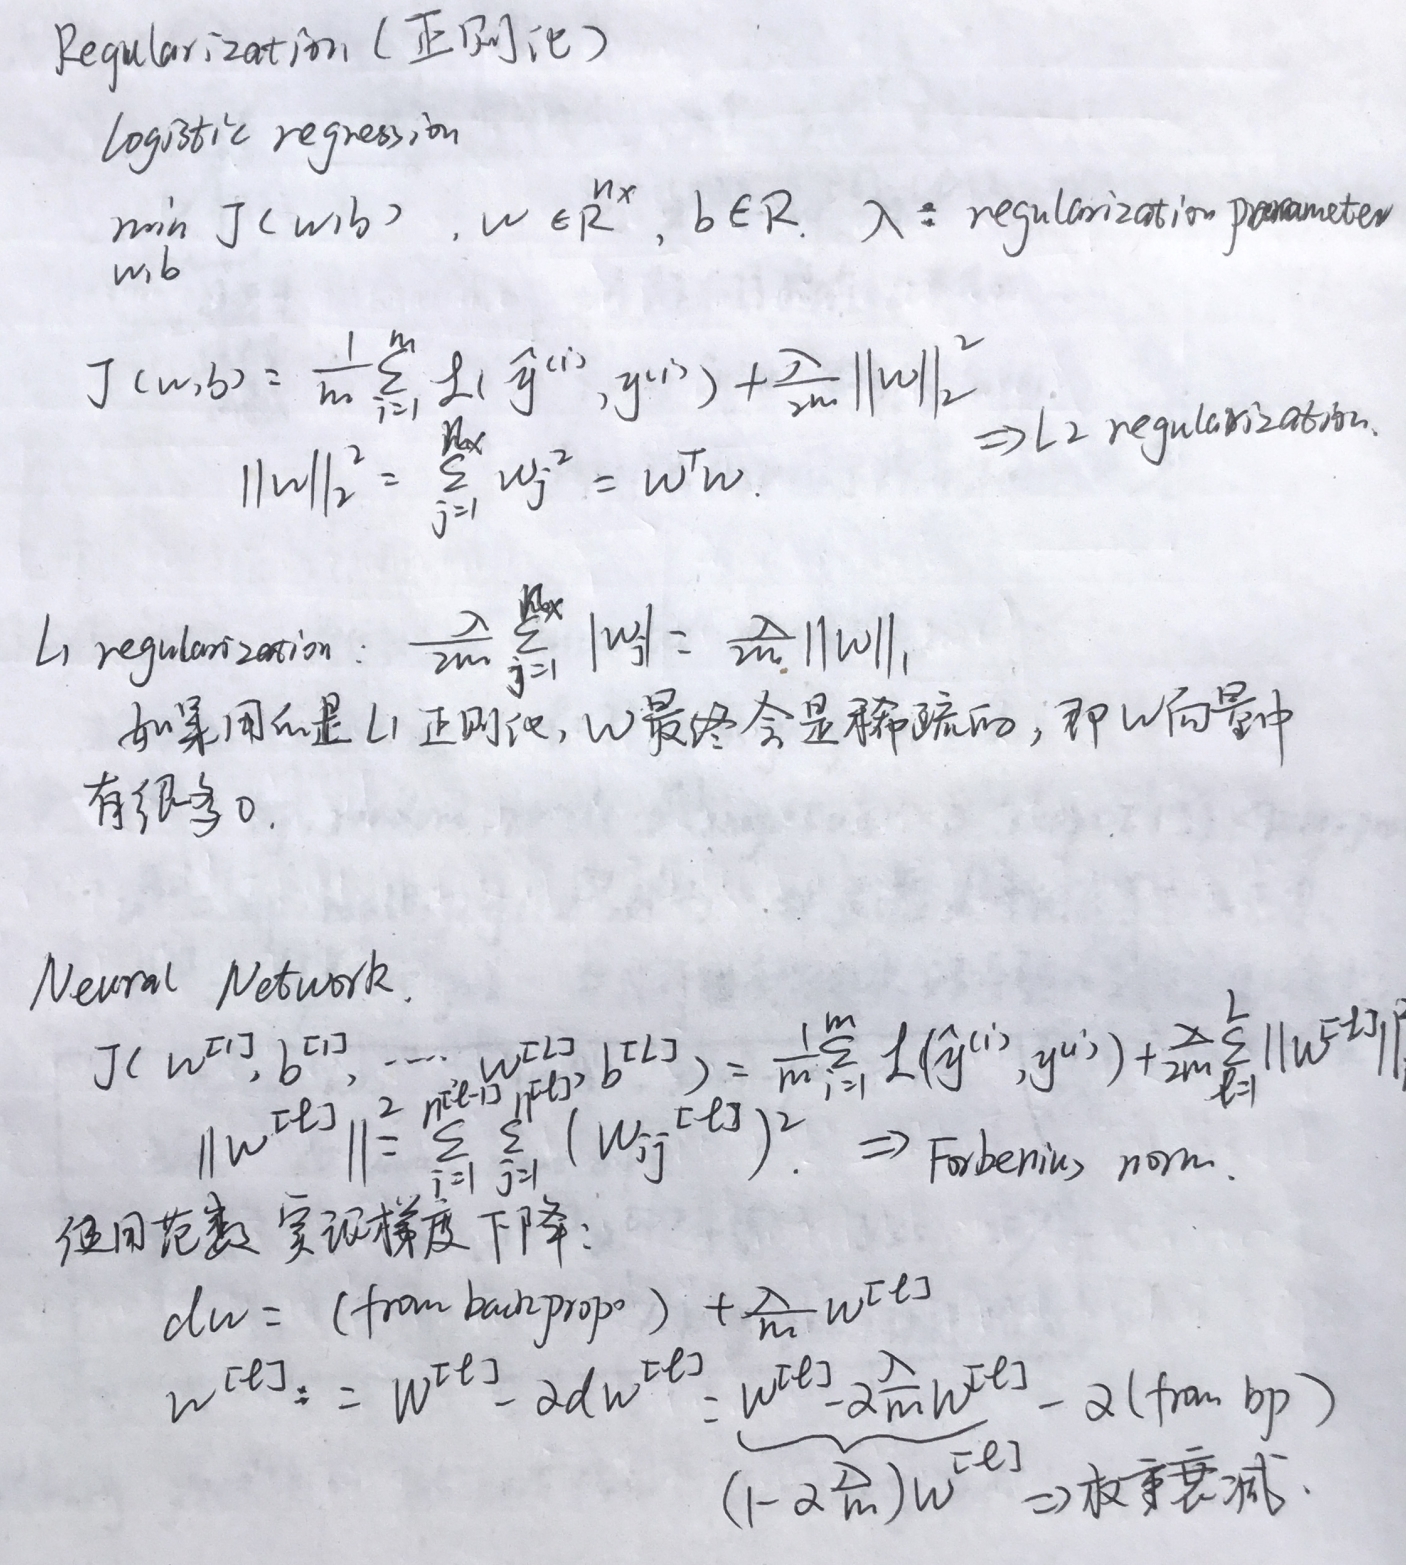 Regularization (正则化)
Logistic regression
min J(w,b) , w ∈ R^{nx} , b ∈ R. λ : regularization parameter
w,b
J(w,b) = \frac{1}{m} \sum_{i=1}^{m} L(ŷ^{(i)}, y^{(i)}) + \frac{λ}{2m} ||w||_2^2
⇒ L2 regularization.
||w||_2^2 = \sum_{j=1}^{nx} w_j^2 = w^T w.
L1 regularization: \frac{λ}{2m} \sum_{j=1}^{nx} |w_j| = \frac{λ}{2m} ||w||_1
如果用的是L1正则化, w最终会是稀疏的, 即w向量中
有很多0.
Neural Network.
J(w^{[1]}, b^{[1]}, ···· w^{[L]}, b^{[L]}) = \frac{1}{m} \sum_{i=1}^{m} L(ŷ^{(i)}, y^{(i)}) + \frac{λ}{2m} \sum_{l=1}^{L} ||w^{[l]}||^2
||w^{[l]}||^2 = \sum_{i=1}^{n^{[l-1]}} \sum_{j=1}^{n^{[l]}} (w_{ij}^{[l]})^2. ⇒ Forbenius norm.
使用范数实现梯度下降:
dw = (from backprop) + \frac{λ}{m} w^{[l]}
w^{[l]} := w^{[l]} - αdw^{[l]} = w^{[l]} - α\frac{λ}{m}w^{[l]} - α(from bp)
(1-α\frac{λ}{m})w^{[l]} ⇒ 权重衰减.